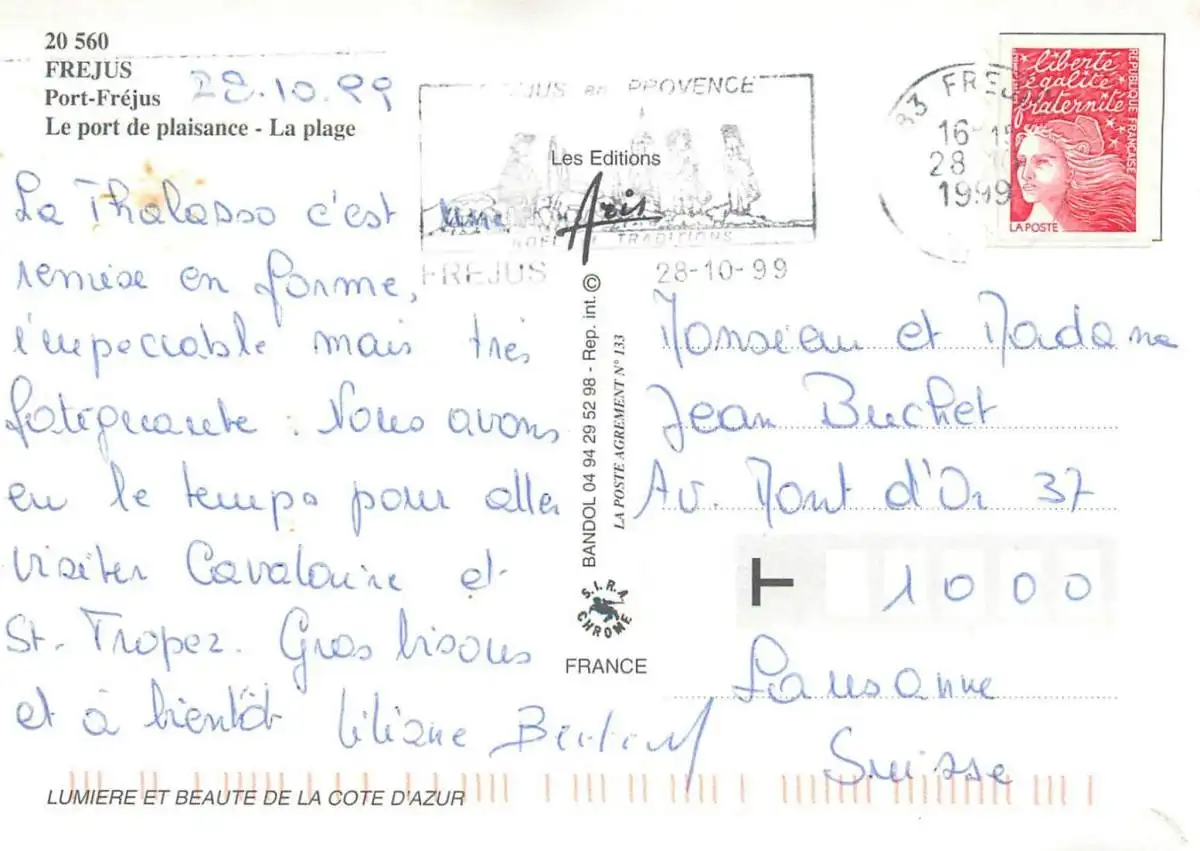 20 560
FREJUS
Port-Fréjus
Le port de plaisance - La plage
28.10.99
La Thalasso c'est une
remise en forme,
impeccable mais très
fatiguante. Nous avons
eu le temps pour aller
visiter Cavalaire et
St. Tropez. Gros bisous
et à bientôt Liliane
LUMIERE ET BEAUTE DE LA COTE D'AZUR
FREJUS en PROVENCE
NOEL TRADITIONS
FREJUS 28-10-99
Les Editions
Aris
BANDOL 04 94 29 52 98 - Rep. int. ©
LA POSTE AGREMENT N° 133
S.I.R.A
CHROME
FRANCE
83 FREJUS
16-15
28 10
1999
liberté
égalité
fraternité
REPUBLIQUE FRANÇAISE
LA POSTE
Monsieur et Madame
Jean Buchet
Av. Mont d'Or 37
T 1000
Lausanne
Suisse